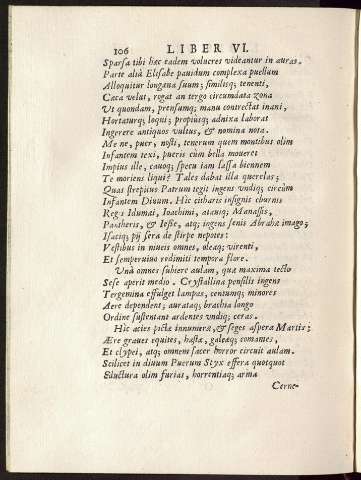 106 LIBER VI.
Sparsa tibi hæc eadem volucres videantur in auras.
Parte aliâ Elisabe pavidum complexa puellum
Alloquitur longæva suum; similisq; tenenti,
Cæca velut, rogat an tergo circumdata zona
Ut quondam, prensumq; manu contrectat inani,
Hortaturq; loqui; propiusq; adnixa laborat
Ingerere antiquos vultus, & nomina nota.
Me ne, puer, nosti, tenerum quem montibus olim
Infantem texi, pueris cùm bella moveret
Impius ille, cavoq; specu iam lassa biennem
Te moriens liqui? Tales dabat illa querelas;
Quas strepitus Patrum tegit ingens undiq; circùm
Infantem Divum. Hic citharis insignis eburnis
Regis Idumæi, Ioachimi, atavuq; Manassis,
Pantheris, & Iessæ, atq; ingens senis Abrahæ imago;
Isaciq; pij sera de stirpe nepotes:
Vestibus in niveis omnes, oleaq; virenti,
Et sempervivo redimiti tempora flore.
Unà omnes subiere aulam, quæ maxima tecto
Sese aperit medio. Crystallina pensilis ingens
Tergemina effulget lampas, centumq; minores
Aere dependent; aurataq; brachia longo
Ordine sustentant ardentes undiq; ceras.
Hic acies pictæ innumeræ, & seges aspera Martis;
Ære graves equites, hastæ, galeæq; comantes,
Et clypei, atq; omnem sacer horror circuit aulam.
Scilicet in divum Puerum Styx effera quotquot
Eductura olim furias, horrentiaq; arma
Cerne-